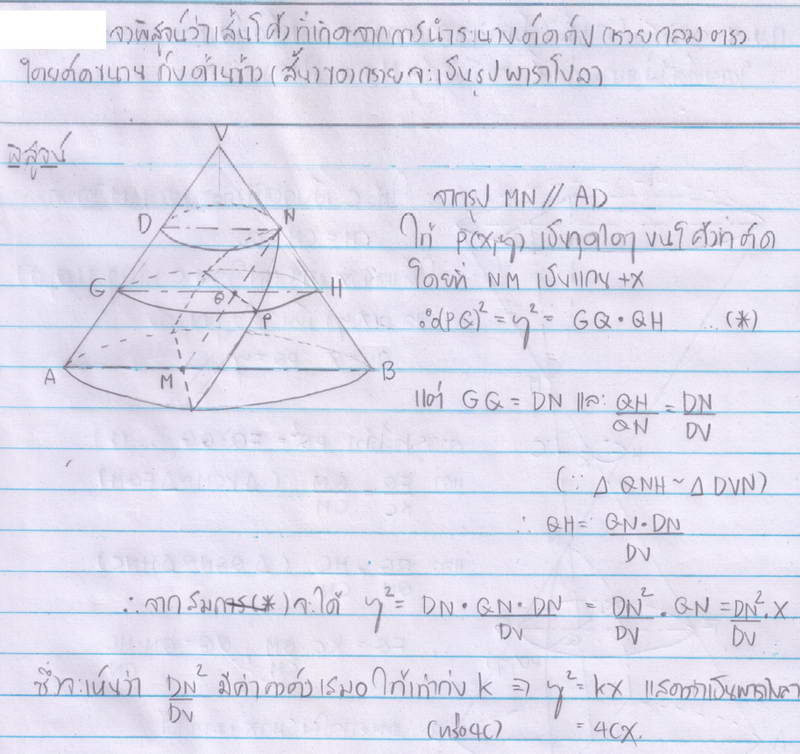 จงพิสูจน์ว่าเส้นโค้งที่เกิดจากการนำระนาบตัดกับกรวยกลมตรง
โดยตัดขนานกับด้านข้าง กรวยจะเป็นรูปพาราโบลา
พิสูจน์
V
D
N
G
Q
H
P
A
M
B
จากรูป MN // AD
ให้ P(x,y) เป็นจุดใดๆ บนโค้งที่ตัด
โดยที่ NM เป็นแกน +x
∴ (PQ)² = y² = GQ·QH ...(*)
แต่ GQ = DN และ QH/QN = DN/DV
(∵ Δ QNH ~ Δ DVN)
∴ QH = QN·DN/DV
∴ จากสมการ(*) จะได้ y² = DN·QN·DN/DV = DN²/DV·QN = DN²/DV·x
ซึ่งจะเห็นว่า DN²/DV มีค่าคงตัวเสมอ ให้เท่ากับ k ⇒ y² = kx แสดงว่าเป็นพาราโบลา
(หรือ4c) = 4cx.